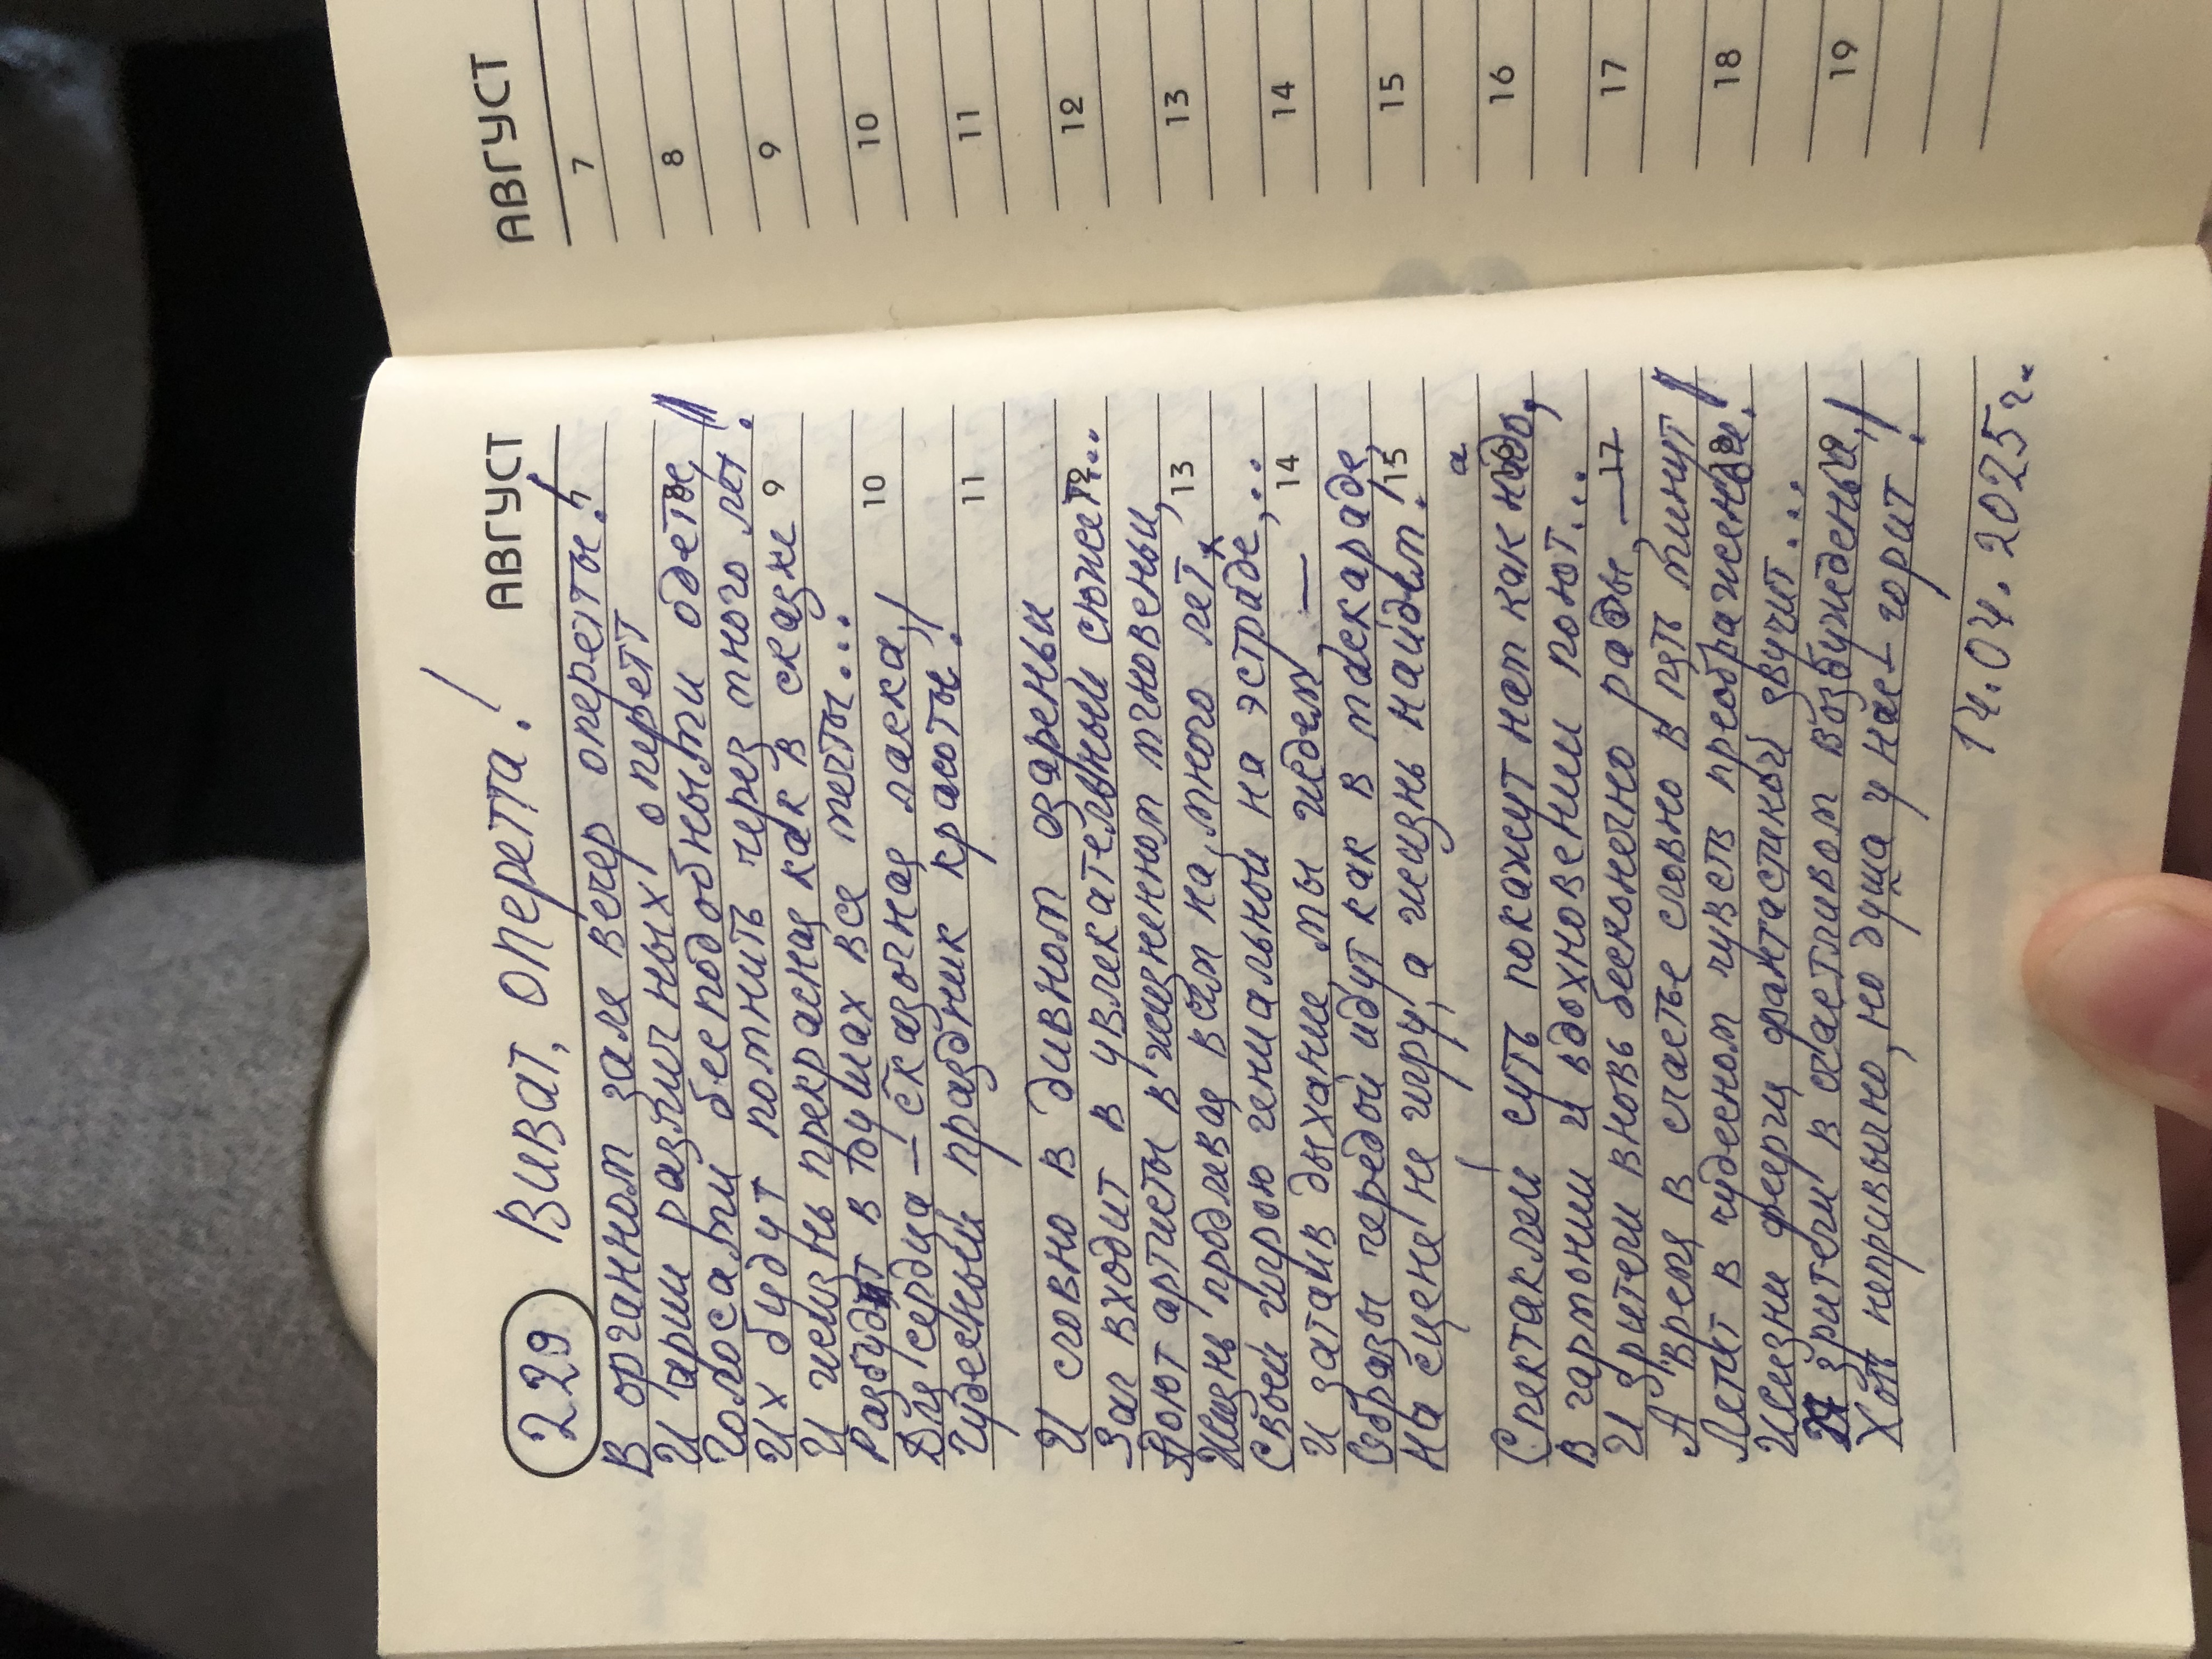 АВГУСТ
229 Виват, оперетта!
В органном зале вечер оперетты!
7
И арии различных оперетт
Голосами бесподобными одеты,
8
Их будут помнить через много лет!
И жизнь прекрасная как в сказке
9
Разбудит в душах все мечты...
10
Для сердца – сказочная ласка,
Чудесный праздник красоты!
11
И словно в дивном озареньи
Зал входит в увлекательный сюжет...
12
Поют артисты в жизненном мгновеньи,
Жизнь продлевая всем на много лет
13
Своей игрою гениальной на эстраде,..
И затаив дыхание, мы ждём, –
14
Образы чередой идут как в маскараде,
На сцене не игру, а жизнь найдём!
15
а
Спектаклей суть покажут нам как надо,
16
В гармонии и вдохновении поют...
И зрители вновь бесконечно рады, –
17
А время в счастье словно в пять минут!
Летит в чудесном чувств преображеньи!
18
Жизни феерия фантастикой звучит...
И зрители в счастливом возбужденьи,
19
Хоть непривычно, но душа у нас – горит!
14.04.2025г.
АВГУСТ
7
8
9
10
11
12
13
14
15
16
17
18
19